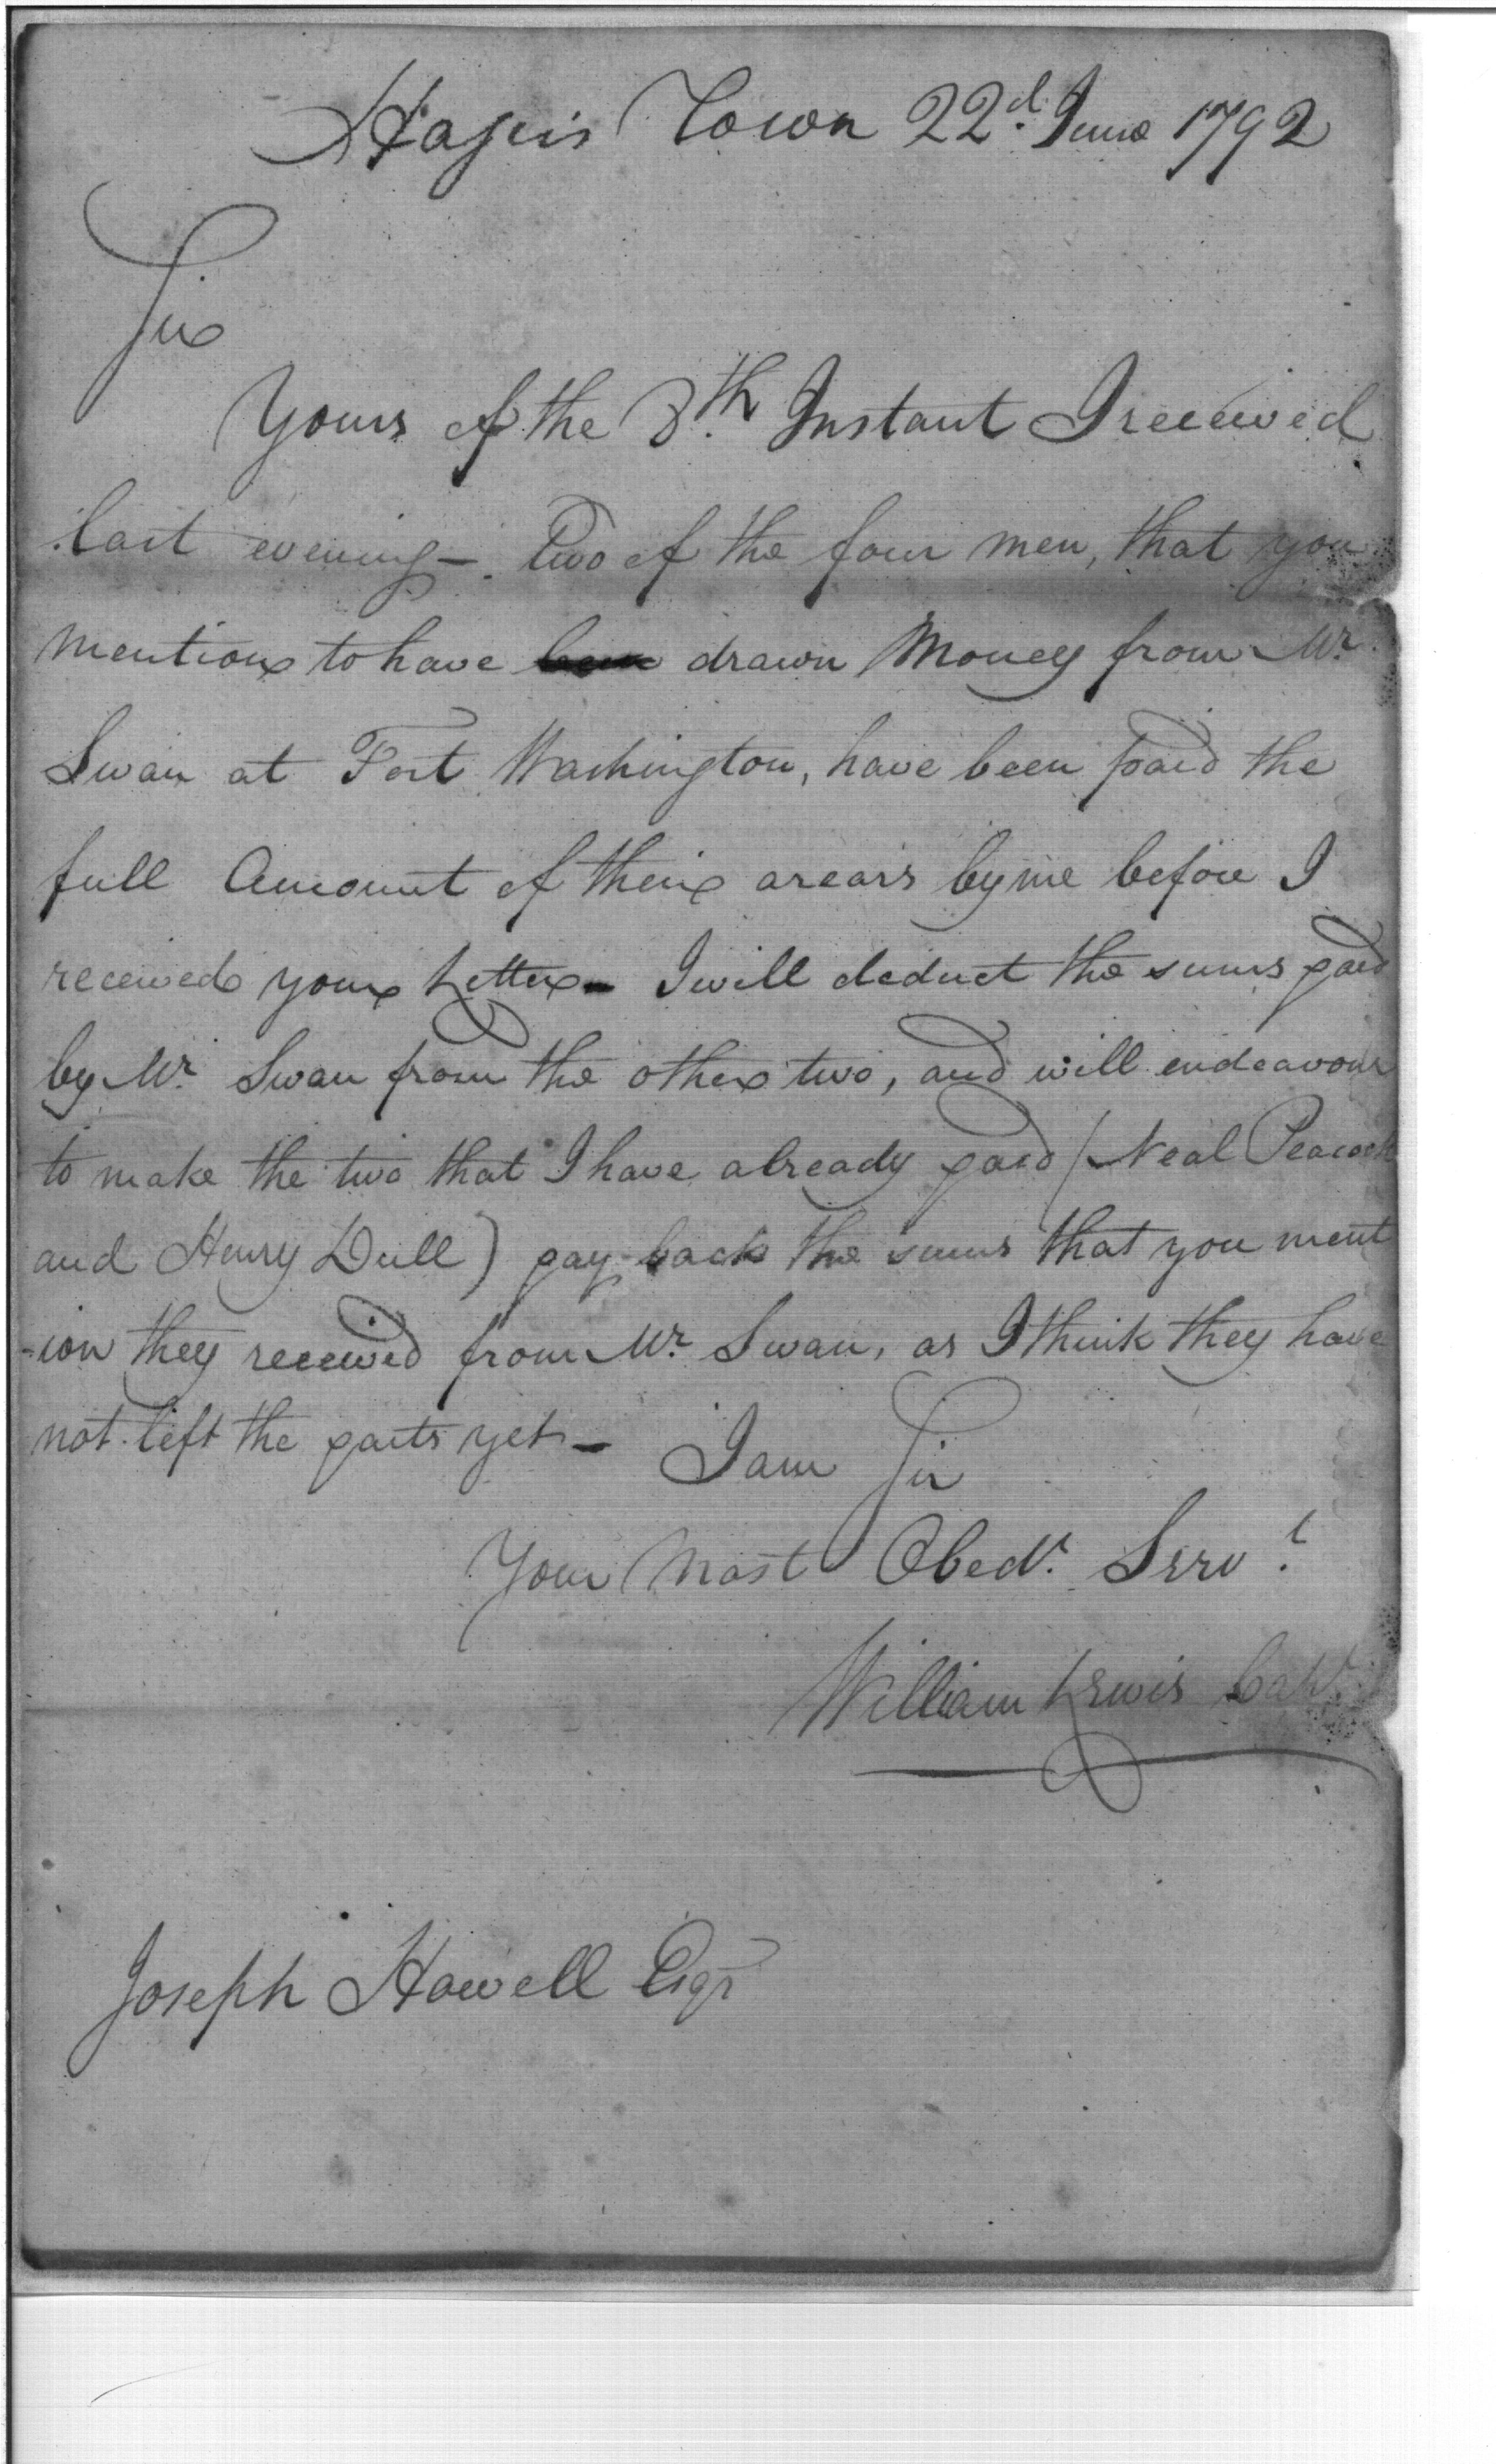 Hagers Town 22d. June 1792
Sir
Yours of the 8th. Instant I received
last evening—. Two of the four men, that you
mention to have been drawn Money from Mr.
Swan at Fort Washington, have been paid the
full Amount of their arears by me before I
received your Letter— I will deduct the sums paid
by Mr. Swan from the other two, and will endeavour
to make the two that I have already paid (Neal Peacock
and Henry Dull) pay back the sums that you ment
-ion they received from Mr. Swan, as I think they have
not left the parts yet— I am Sir
Your Most Obedt. Servt.
William Lewis Capt.
Joseph Howell Esqr